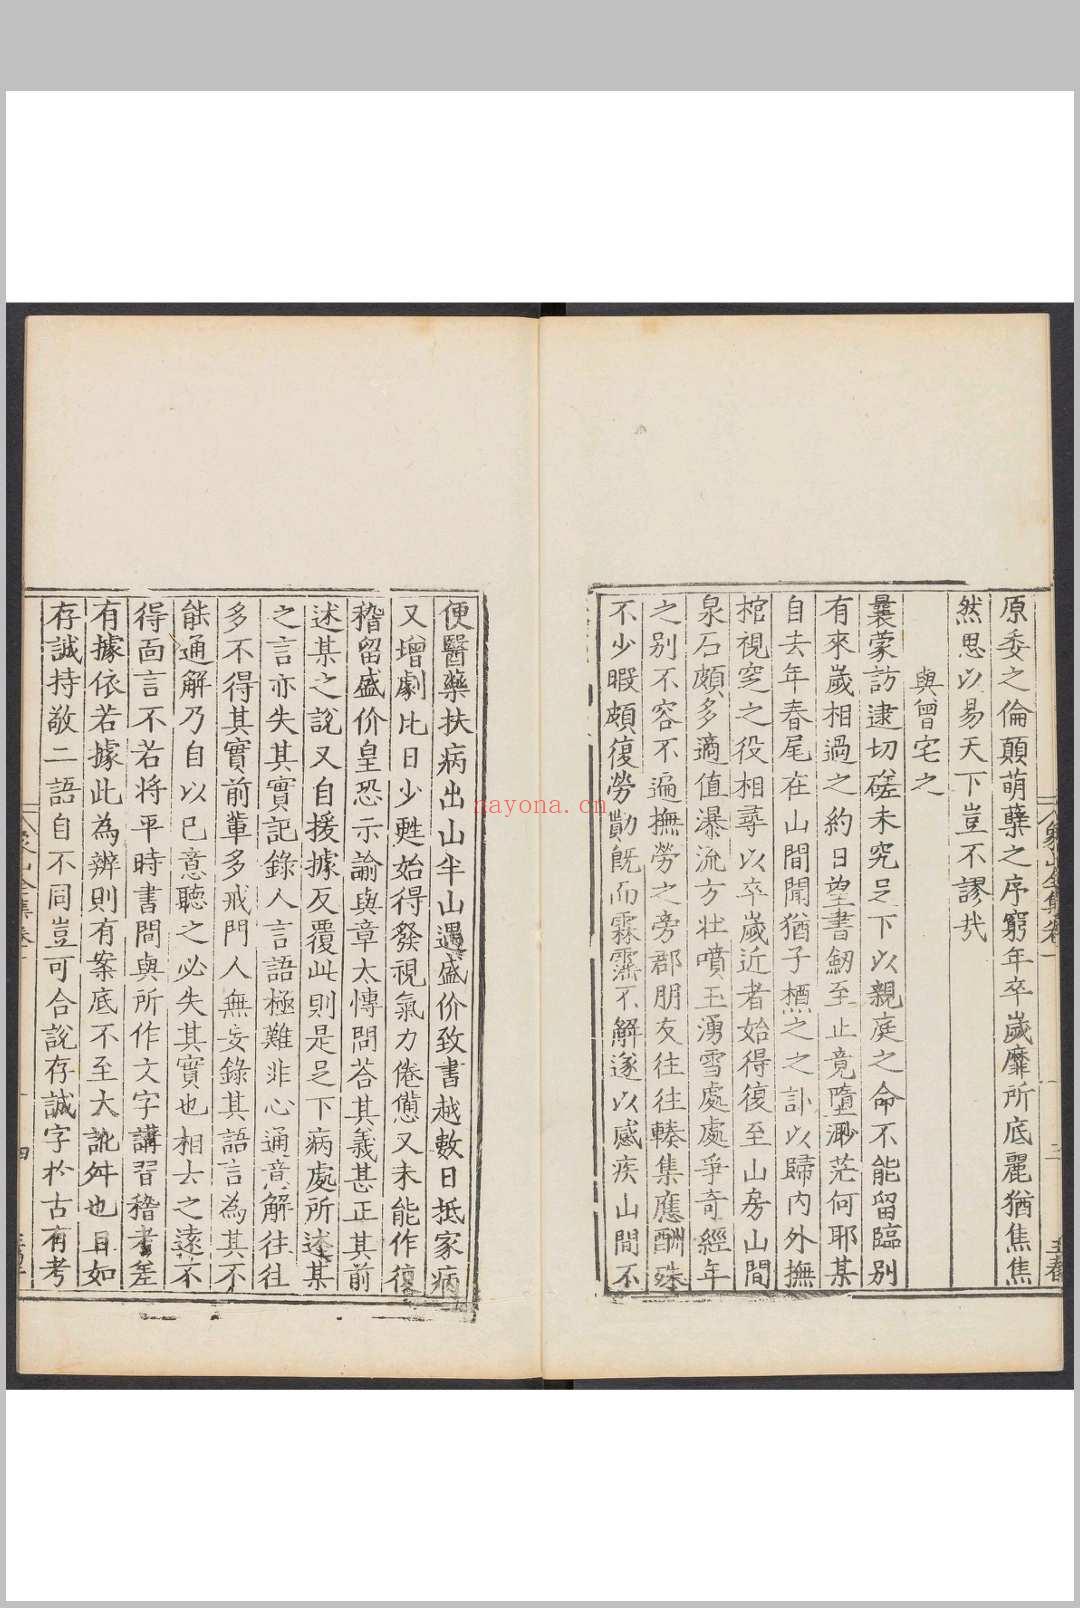 原委之倫顛萌櫱之序窮年卒歲靡所底麗猶焦焦
然思以易天下豈不謬哉
與曾宅之
曩蒙訪逮切磋未究足下以親庭之命不能留臨別
有來歲相過之約日望書劒至止竟墮渺茫何耶某
自去年春尾在山間聞猶子槱之之訃以歸內外撫
棺視窆之役相尋以卒歲近者始得復至山房山間
泉石頗多適值瀑流方壯噴玉湧雪處處爭奇經年
之別不容不遍撫勞之旁郡朋友往往輳集應酬殊
不少暇頗復勞勩旣而霖霪不解遂以感疾山間不
便醫藥扶病出山半山遇盛价致書越數日抵家病
又增劇比日少甦始得發視氣力倦憊又未能作復
稽留盛价皇恐示諭與章太博問荅其義甚正其前
述某之說又自援據反覆此則是足下病處所述某
之言亦失其實記錄人言語極難非心通意解往往
多不得其實前輩多戒門人無妄錄其語言為其不
能通解乃自以己意聽之必失其實也相去之遠不
得面言不若將平時書問與所作文字講習稽考差
有據依若據此為辨則有案底不至大訛舛也且如
存誠持敬二語自不同豈可合說存誠字於古有考
象山全集卷一
三
四
nayona.cn